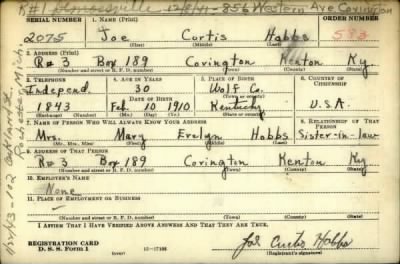 R#1 12/8/41-856 Western Ave Covington
SERIAL NUMBER 1. NAME (Print) ORDER NUMBER
2075 Joe Curtis Hobbs 582
(First) (Middle) (Last)
2. ADDRESS (Print)
R#3 Box 189 Covington Kenton Ky
(Number and street or R. F. D. number) (Town) (County) (State)
3. TELEPHONE 4. AGE IN YEARS 5. PLACE OF BIRTH 6. COUNTRY OF CITIZENSHIP
Independ. 30 Wolf Co.
DATE OF BIRTH (Town or county)
1843 Feb 10 1910 Kentucky U.S.A.
(Exchange) (No.) (Mo.) (Day) (Yr.) (State or country)
7. NAME OF PERSON WHO WILL ALWAYS KNOW YOUR ADDRESS 8. RELATIONSHIP OF THAT PERSON
Mrs. Mary Evelyn Hobbs Sister-in-law
(Mr., Mrs., Miss) (First) (Middle) (Last)
9. ADDRESS OF THAT PERSON
R#3 Box 189 Covington Kenton Ky
(Number and street or R. F. D. number) (Town) (County) (State)
10. EMPLOYER'S NAME
None
11. PLACE OF EMPLOYMENT OR BUSINESS
(Number and street or R. F. D. number) (Town) (County) (State)
I AFFIRM THAT I HAVE VERIFIED ABOVE ANSWERS AND THAT THEY ARE TRUE.
REGISTRATION CARD
D. S. S. Form 1 16-17105 Joe Curtis Hobbs
(Registrant's signature)
Rochester, Mich.